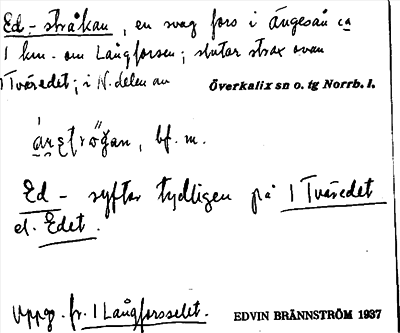 Ed-stråkan, en svag fors i Ängesån ca
1 km. om Långforsen; slutar strax ovan
1 Tväredet; i N. delen av Överkalix sn o. tg Norrb. l.
bf. m.
Ed- syftar tydligen på 1 Tväredet
el. Edet.
Uppg. fr. 1 Långforsselet. EDVIN BRÄNNSTRÖM 1937